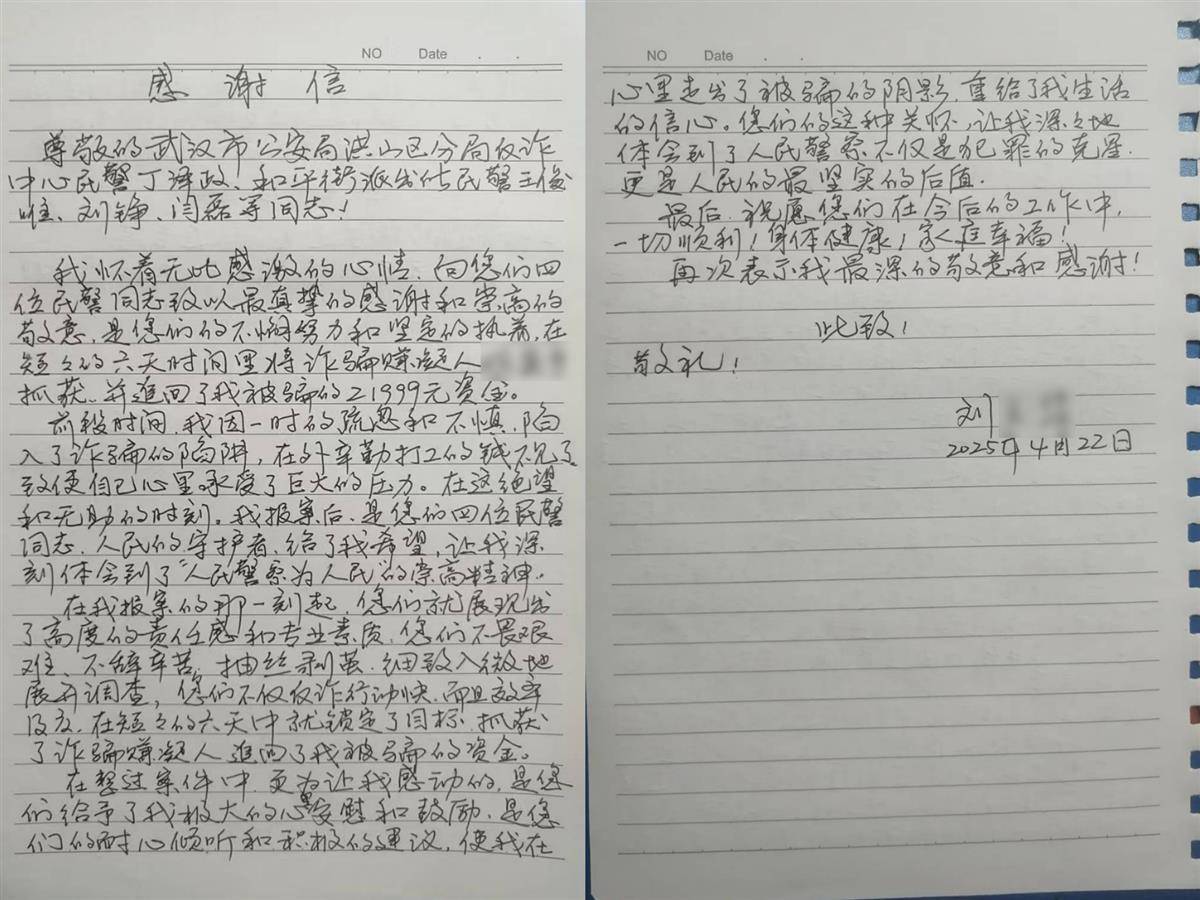 NO Date
感谢信
尊敬的武汉市公安局洪山区分局反诈
中心民警丁泽政、和平街派出所民警王俊
唯、刘铮、闫磊等同志!
我怀着无比感激的心情,向您们四
位民警同志致以最真挚的感谢和崇高的
敬意,是您们的不懈努力和坚定的执着,在
短々的六天时间里将诈骗赚凝人
抓获,并追回了我被骗的21999元资金。
前段时间,我因一时的疏忽和不慎,陷
入了诈骗的陷阱,在外辛勤打工的钱不见了
致使自己心里承受了巨大的压力。在这绝望
和无助的时刻。我报案后、是您们四位民警
同志、人民的守护者、给了我希望,让我深
刻体会到了“人民警察为人民”的崇高精神。
在我报案的那一刻起,您们就展现出
了高度的责任感和专业素质,您们不畏艰
难、不辞辛苦,抽丝剥茧,细致入微地
展开调查,您们不仅反诈行动快,而且效率
及高,在短々的六天中就锁定了目标,抓获
了诈骗赚凝人追回了我被骗的资金。
在整过案件中,更为让我感动的,是您
们给予了我极大的心里安慰和鼓励,是您
们的耐心倾听和积极的建议,使我在
NO Date
心里走出了被骗的阴影,重给了我生活
的信心。您们的这种关怀,让我深々地
体会到了人民警察不仅是犯罪的克星,
更是人民的最坚实的后盾.
最后,祝愿您们在今后的工作中,
一切顺利!身体健康!家庭幸福!
再次表示我最深的敬意和感谢!
此致!
敬礼!
刘
2025年4月22日